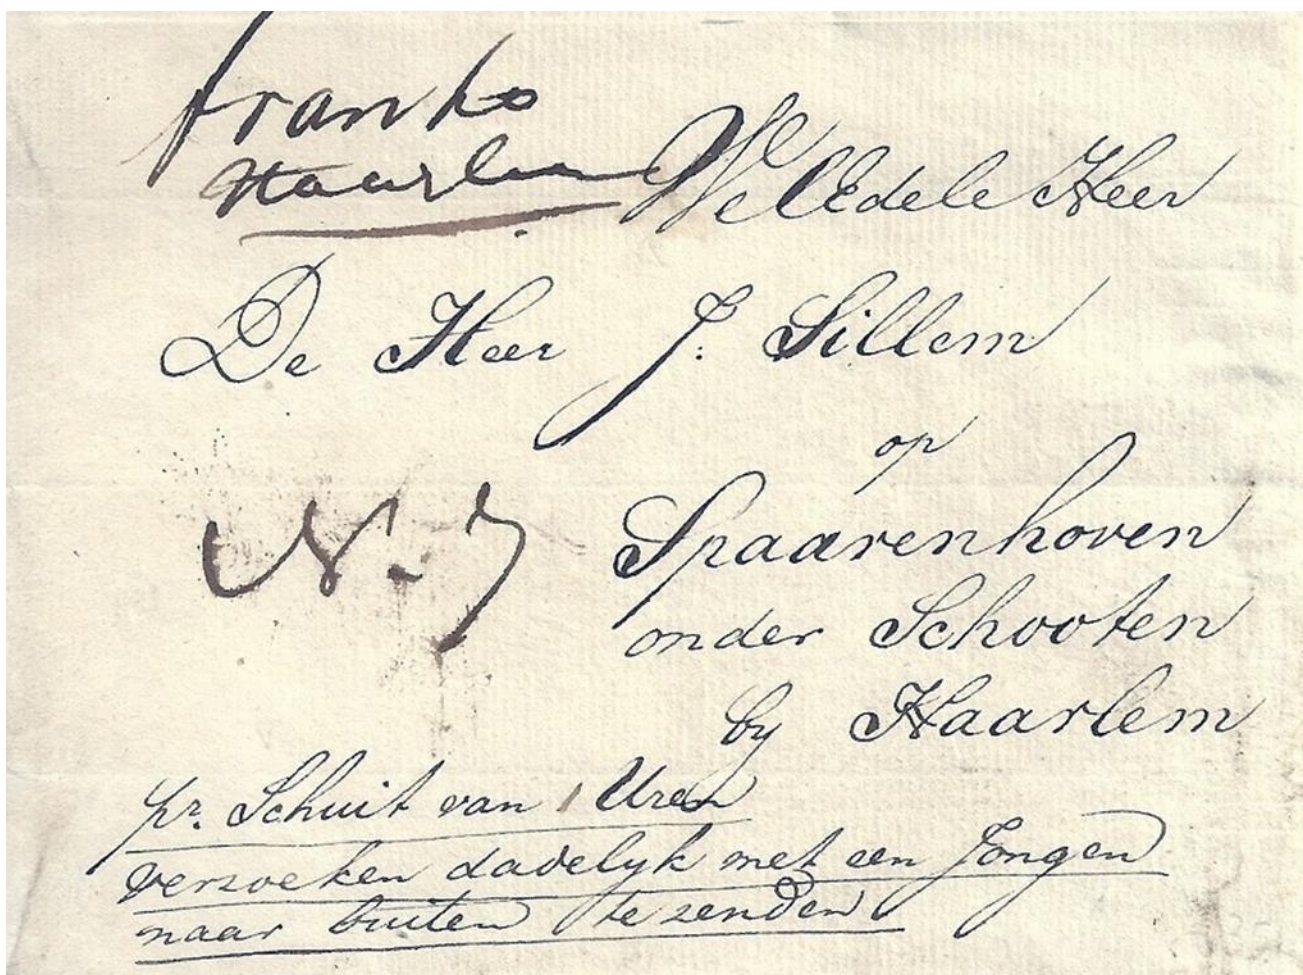 franko
Haarlem
WelEdele Heer
De Heer J: Sillem
op
Spaarenhoven
N.
onder Schooten
by Haarlem
pr. Schuit van 1 Uren
verzoeken dadelyk met een Jongen
naar buiten te zenden